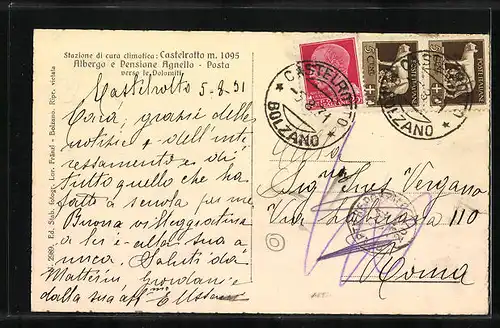 Stazione di cura climatica: Castelrotto m. 1095
Albergo e Pensione Agnello - Posta
verso le Dolomiti
Castelrotto 5-8-31
Cara, grazie delle
notizie e dell'inte
ressamento e di
tutto quello che ha
fatto a scuola per me
Buona villeggiatura
a lei e alla sua a
mica. Saluti da
dalla sua aff
CASTELROTTO
BOLZANO
CASTELROTTO
BOLZANO
5 CENT
Sig Ines Vergano
Via 110
Roma
2989. Ed. Stab. fotogr. Lor. Fränzl - Bolzano. Ripr. vietata